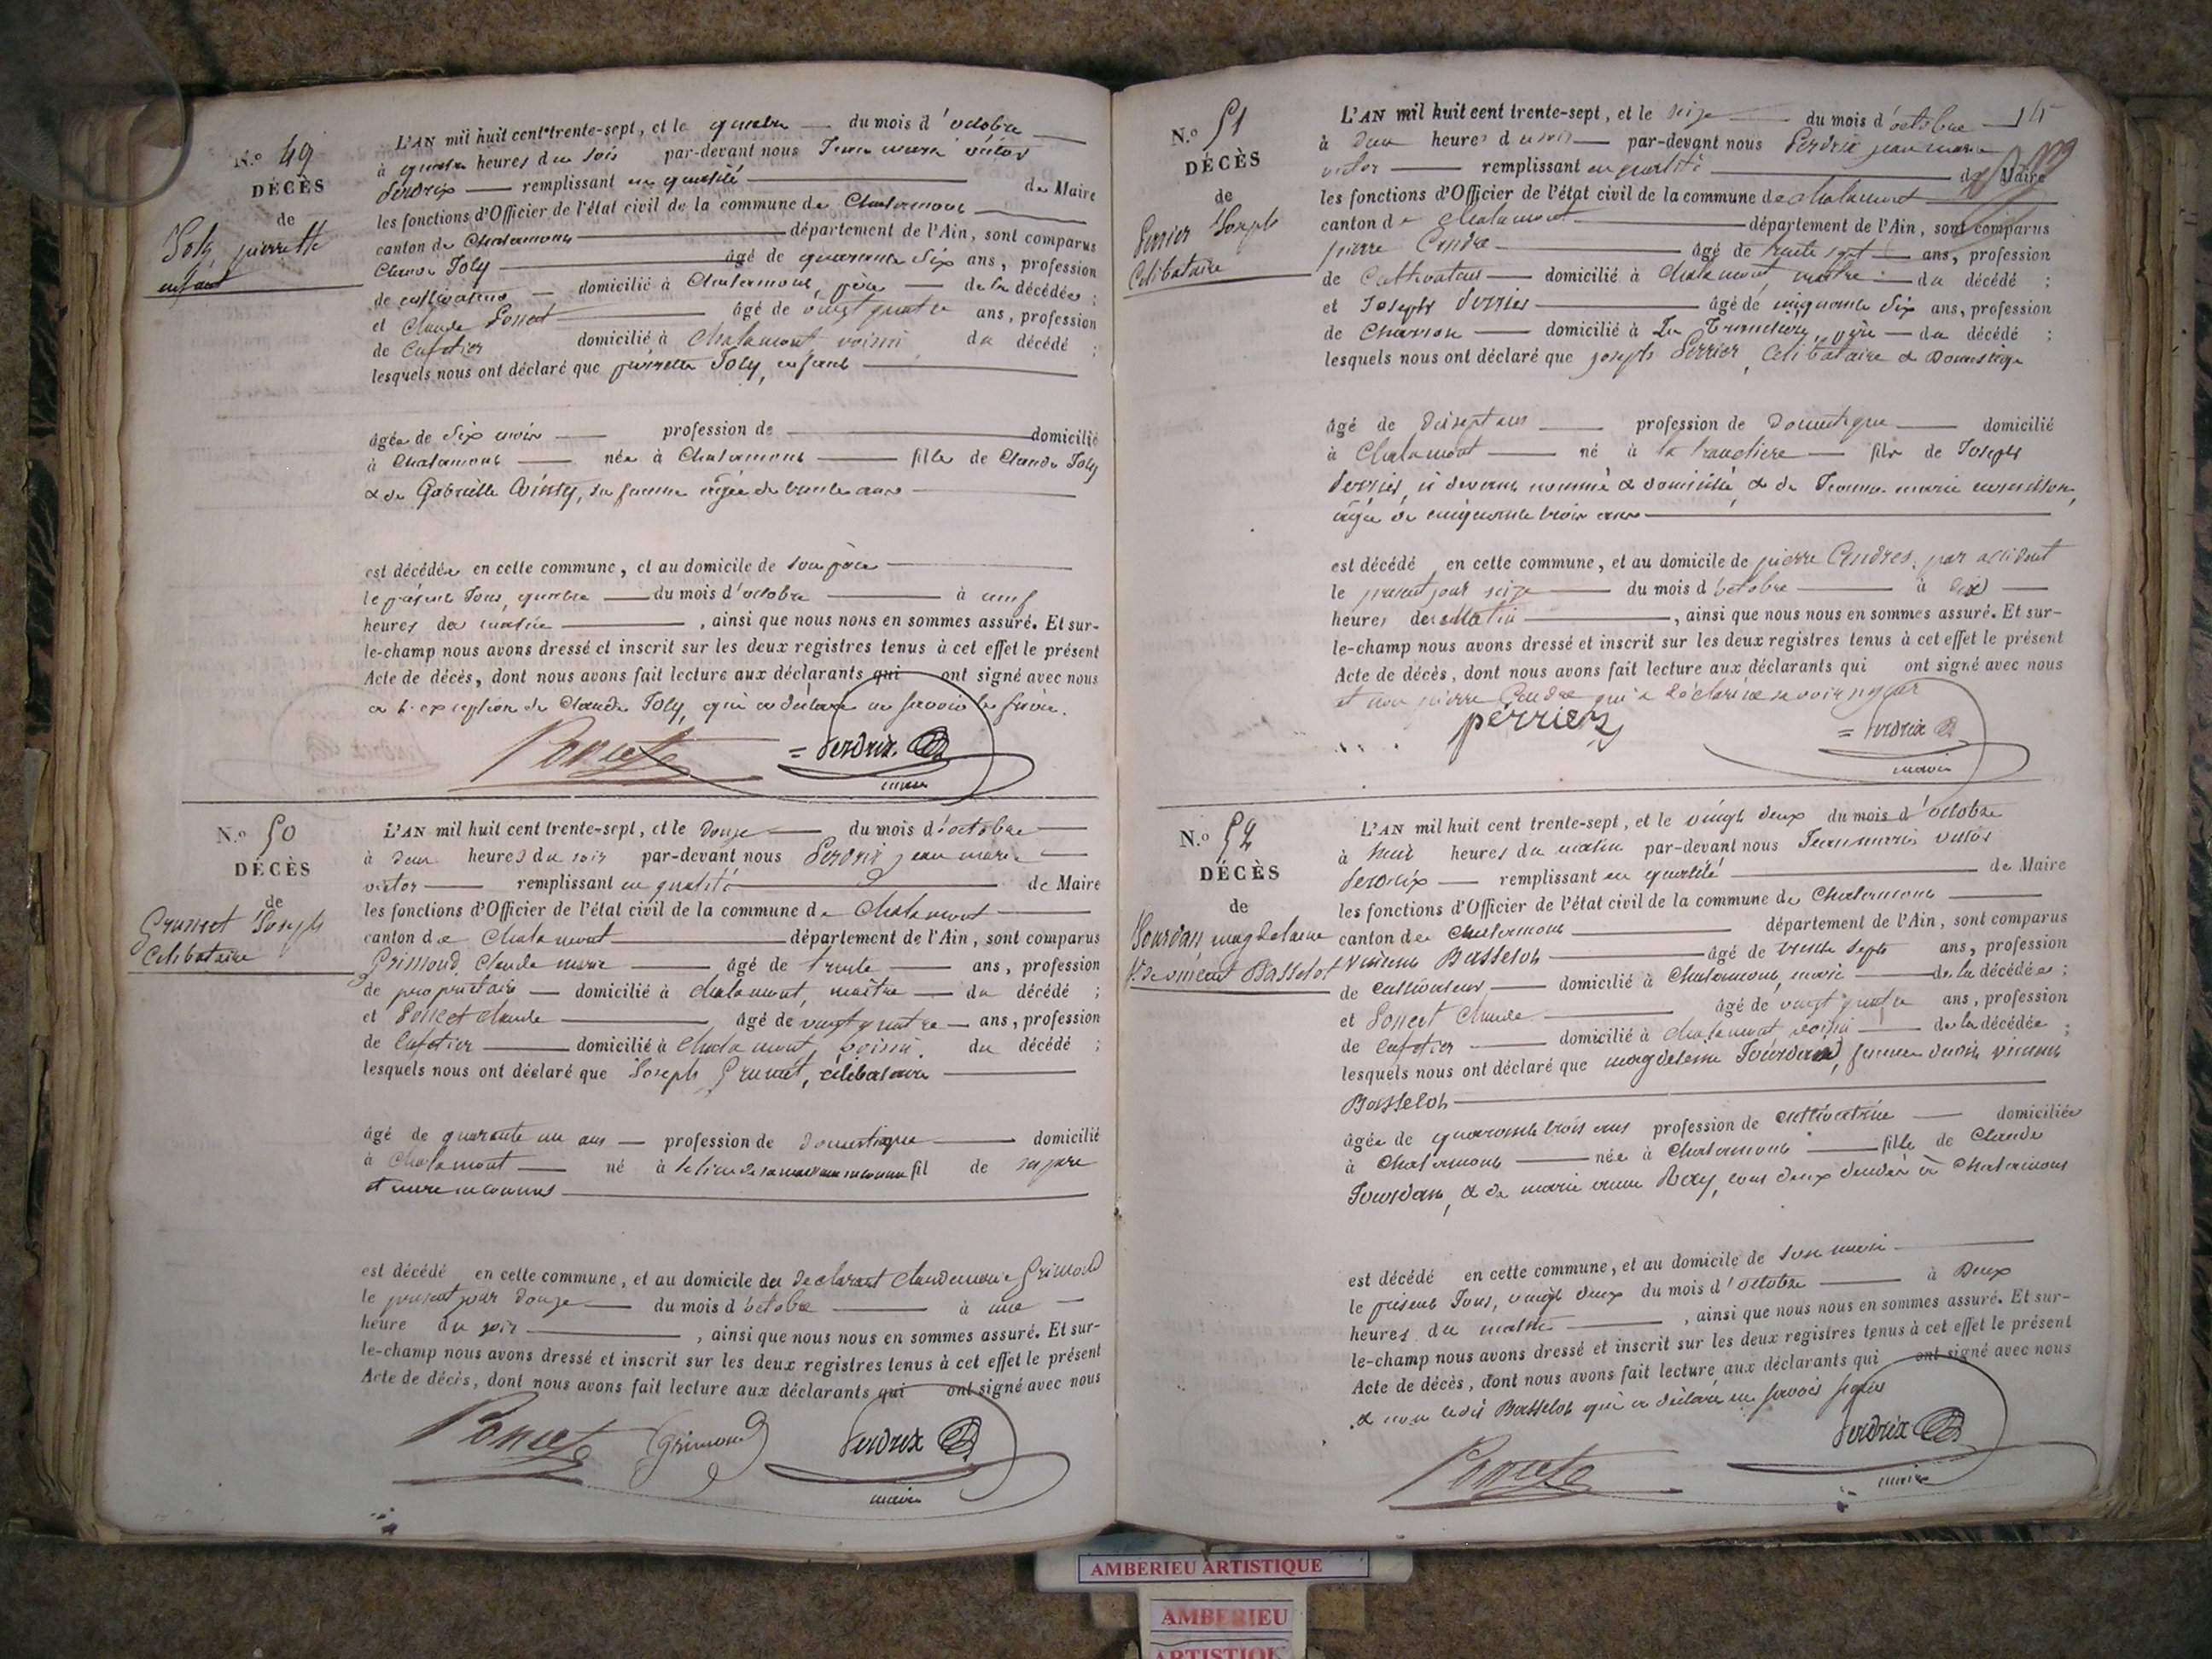 N.o 49
DÉCÈS
de
Joly pierrette
enfant
L'AN mil huit cent trente-sept, et le quatre du mois d'octobre
à quatre heures du soir par-devant nous Jean marie victor
Perdrix remplissant en qualité de Maire
les fonctions d'Officier de l'état civil de la commune de Chalamont
canton de Chalamont département de l'Ain, sont comparus
Claude Joly âgé de quarante six ans, profession
de cultivateur domicilié à Chalamont, père de la décédée ;
et Claude Poncet âgé de vingt quatre ans, profession
de Cafetier domicilié à Chalamont voisin du décédé ;
lesquels nous ont déclaré que pierrette Joly, enfant
âgée de six mois profession de domicilié
à Chalamont née à Chalamont fille de Claude Joly
& de Gabrielle sa femme âgée de trente ans
est décédée en cette commune, et au domicile de son père
le présent Jour, quatre du mois d'octobre à
heures du matin , ainsi que nous nous en sommes assuré. Et sur-
le-champ nous avons dressé et inscrit sur les deux registres tenus à cet effet le présent
Acte de décès, dont nous avons fait lecture aux déclarants qui ont signé avec nous
à l'exception de Claude Joly, qui a déclaré ne savoir le faire.
Poncet = Perdrix
maire
N.o 50
DÉCÈS
de
Joseph
Celibataire
L'AN mil huit cent trente-sept, et le douze du mois d'octobre
à deux heures du soir par-devant nous Perdrix jean marie
victor remplissant en qualité de Maire
les fonctions d'Officier de l'état civil de la commune de Chalamont
canton de Chalamont département de l'Ain, sont comparus
Grimond Claude marie âgé de trente ans, profession
de propriétaire domicilié à Chalamont, maître du décédé ;
et Poncet claude âgé de vingt quatre ans, profession
de Cafetier domicilié à Chalamont, voisin. du décédé ;
lesquels nous ont déclaré que Joseph célibataire
âgé de quarante un ans profession de domestique domicilié
à Chalamont né à le lieu de sa naissance inconnu fil de ses père
et mere inconnus
est décédé en cette commune, et au domicile du declarant Claude marie Grimond
le present jour douze du mois d'octobre à une
heure du soir , ainsi que nous nous en sommes assuré. Et sur-
le-champ nous avons dressé et inscrit sur les deux registres tenus à cet effet le présent
Acte de décès, dont nous avons fait lecture aux déclarants qui ont signé avec nous
Poncet Grimond Perdrix
maire
N.o 51
DÉCÈS
de
Perrier Joseph
Celibataire
L'AN mil huit cent trente-sept, et le seize du mois d'octobre
à deux heures du soir par-devant nous Perdrix jean marie
victor remplissant en qualité de Maire
les fonctions d'Officier de l'état civil de la commune de Chalamont
canton de Chalamont département de l'Ain, sont comparus
pierre âgé de trente sept ans, profession
de Cultivateur domicilié à Chalamont, maître du décédé ;
et Joseph Perrier âgé de cinquante six ans, profession
de Charron domicilié à La Tranclière, père du décédé ;
lesquels nous ont déclaré que joseph Perrier, Célibataire & Domestique
âgé de dix sept ans profession de Domestique domicilié
à Chalamont né à la tranclière fils de Joseph
Perrier, ci devant nommé & domicilié, & de Jeanne marie
âgée de cinquante trois ans
est décédé en cette commune, et au domicile de pierre par accident
le present jour seize du mois d'octobre à dix
heures de Matin , ainsi que nous nous en sommes assuré. Et sur-
le-champ nous avons dressé et inscrit sur les deux registres tenus à cet effet le présent
Acte de décès, dont nous avons fait lecture aux déclarants qui ont signé avec nous
et non pierre qui a déclaré ne savoir signer
perrier = Perdrix
maire
N.o 52
DÉCÈS
de
Jourdan magdelaine
Vincent Basselot
L'AN mil huit cent trente-sept, et le vingt deux du mois d'octobre
à heures du matin par-devant nous Jean marie victor
Perdrix remplissant en qualité de Maire
les fonctions d'Officier de l'état civil de la commune de Chalamont
canton de Chalamont département de l'Ain, sont comparus
Vincent Basselot âgé de trente sept ans, profession
de cultivateur domicilié à Chalamont, mari de la décédée ;
et Poncet Claude âgé de vingt quatre ans, profession
de Cafetier domicilié à Chalamont voisin de la décédée ;
lesquels nous ont déclaré que magdeleine Jourdan, femme dudit vincent
Basselot
âgée de quarante trois ans profession de cultivatrice domiciliée
à Chalamont née à Chalamont fille de Claude
Jourdan, & de marie anne Ray, tous deux décédés à Chalamont
est décédé en cette commune, et au domicile de son mari
le présent Jour, vingt deux du mois d'octobre à Deux
heures du matin , ainsi que nous nous en sommes assuré. Et sur-
le-champ nous avons dressé et inscrit sur les deux registres tenus à cet effet le présent
Acte de décès, dont nous avons fait lecture aux déclarants qui ont signé avec nous
& non ledit Basselot qui a déclaré ne savoir signer
Poncet Perdrix
maire
AMBERIEU ARTISTIQUE
AMBERIEU
ARTISTIQUE